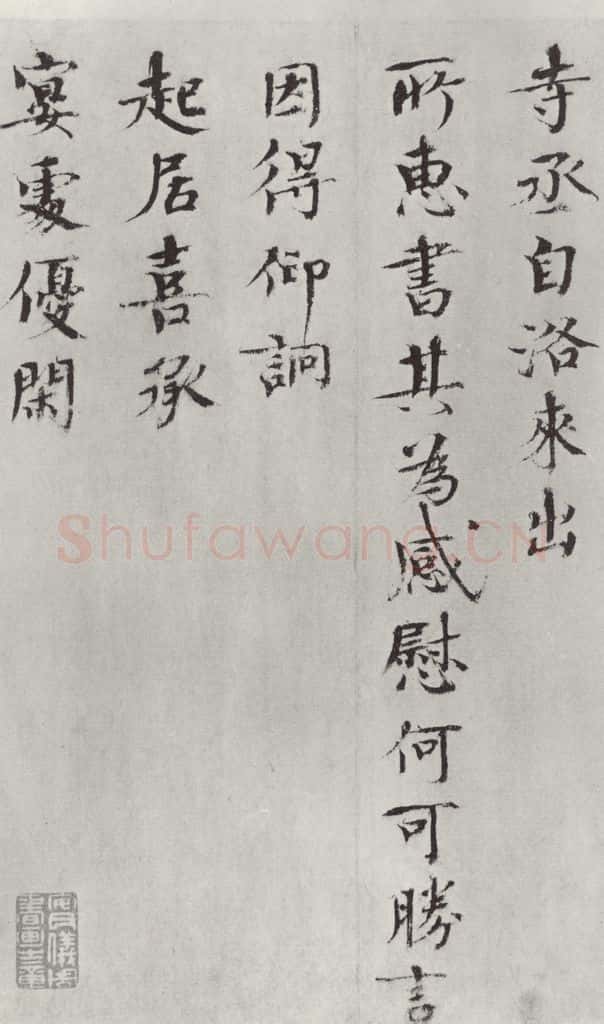 寺丞自洛來出
所惠書其為感慰何可勝言
因得仰詗
起居喜承
宴處優閑
Shufawang.CN